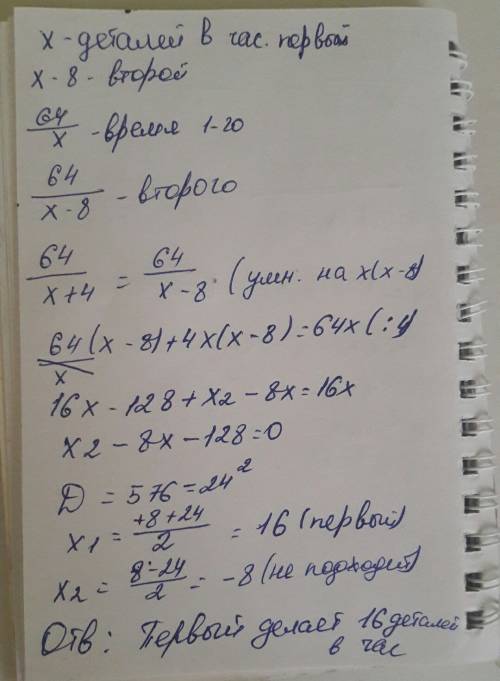 x - деталей в час. первый
x - 8 - второй
64/x - время 1-го
64/(x - 8) - второго
64/(x + 4) = 64/(x - 8) (умн. на x(x-8)
64/x (x - 8) + 4x(x - 8) = 64x (:4)
16x - 128 + x2 - 8x = 16x
x2 - 8x - 128 = 0
D = 576 = 24²
x1 = (+8 + 24)/2 = 16 (первый)
x2 = (8 - 24)/2 = -8 (не подходит)
Отв: Первый делает 16 деталей
в час